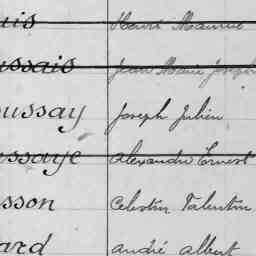 uis Henri Maurice
ussais Jean Marie Joseph
oussay Joseph Julien
ussaye Alexandre Ernest
sson Celestin Valentin
ard André Albert